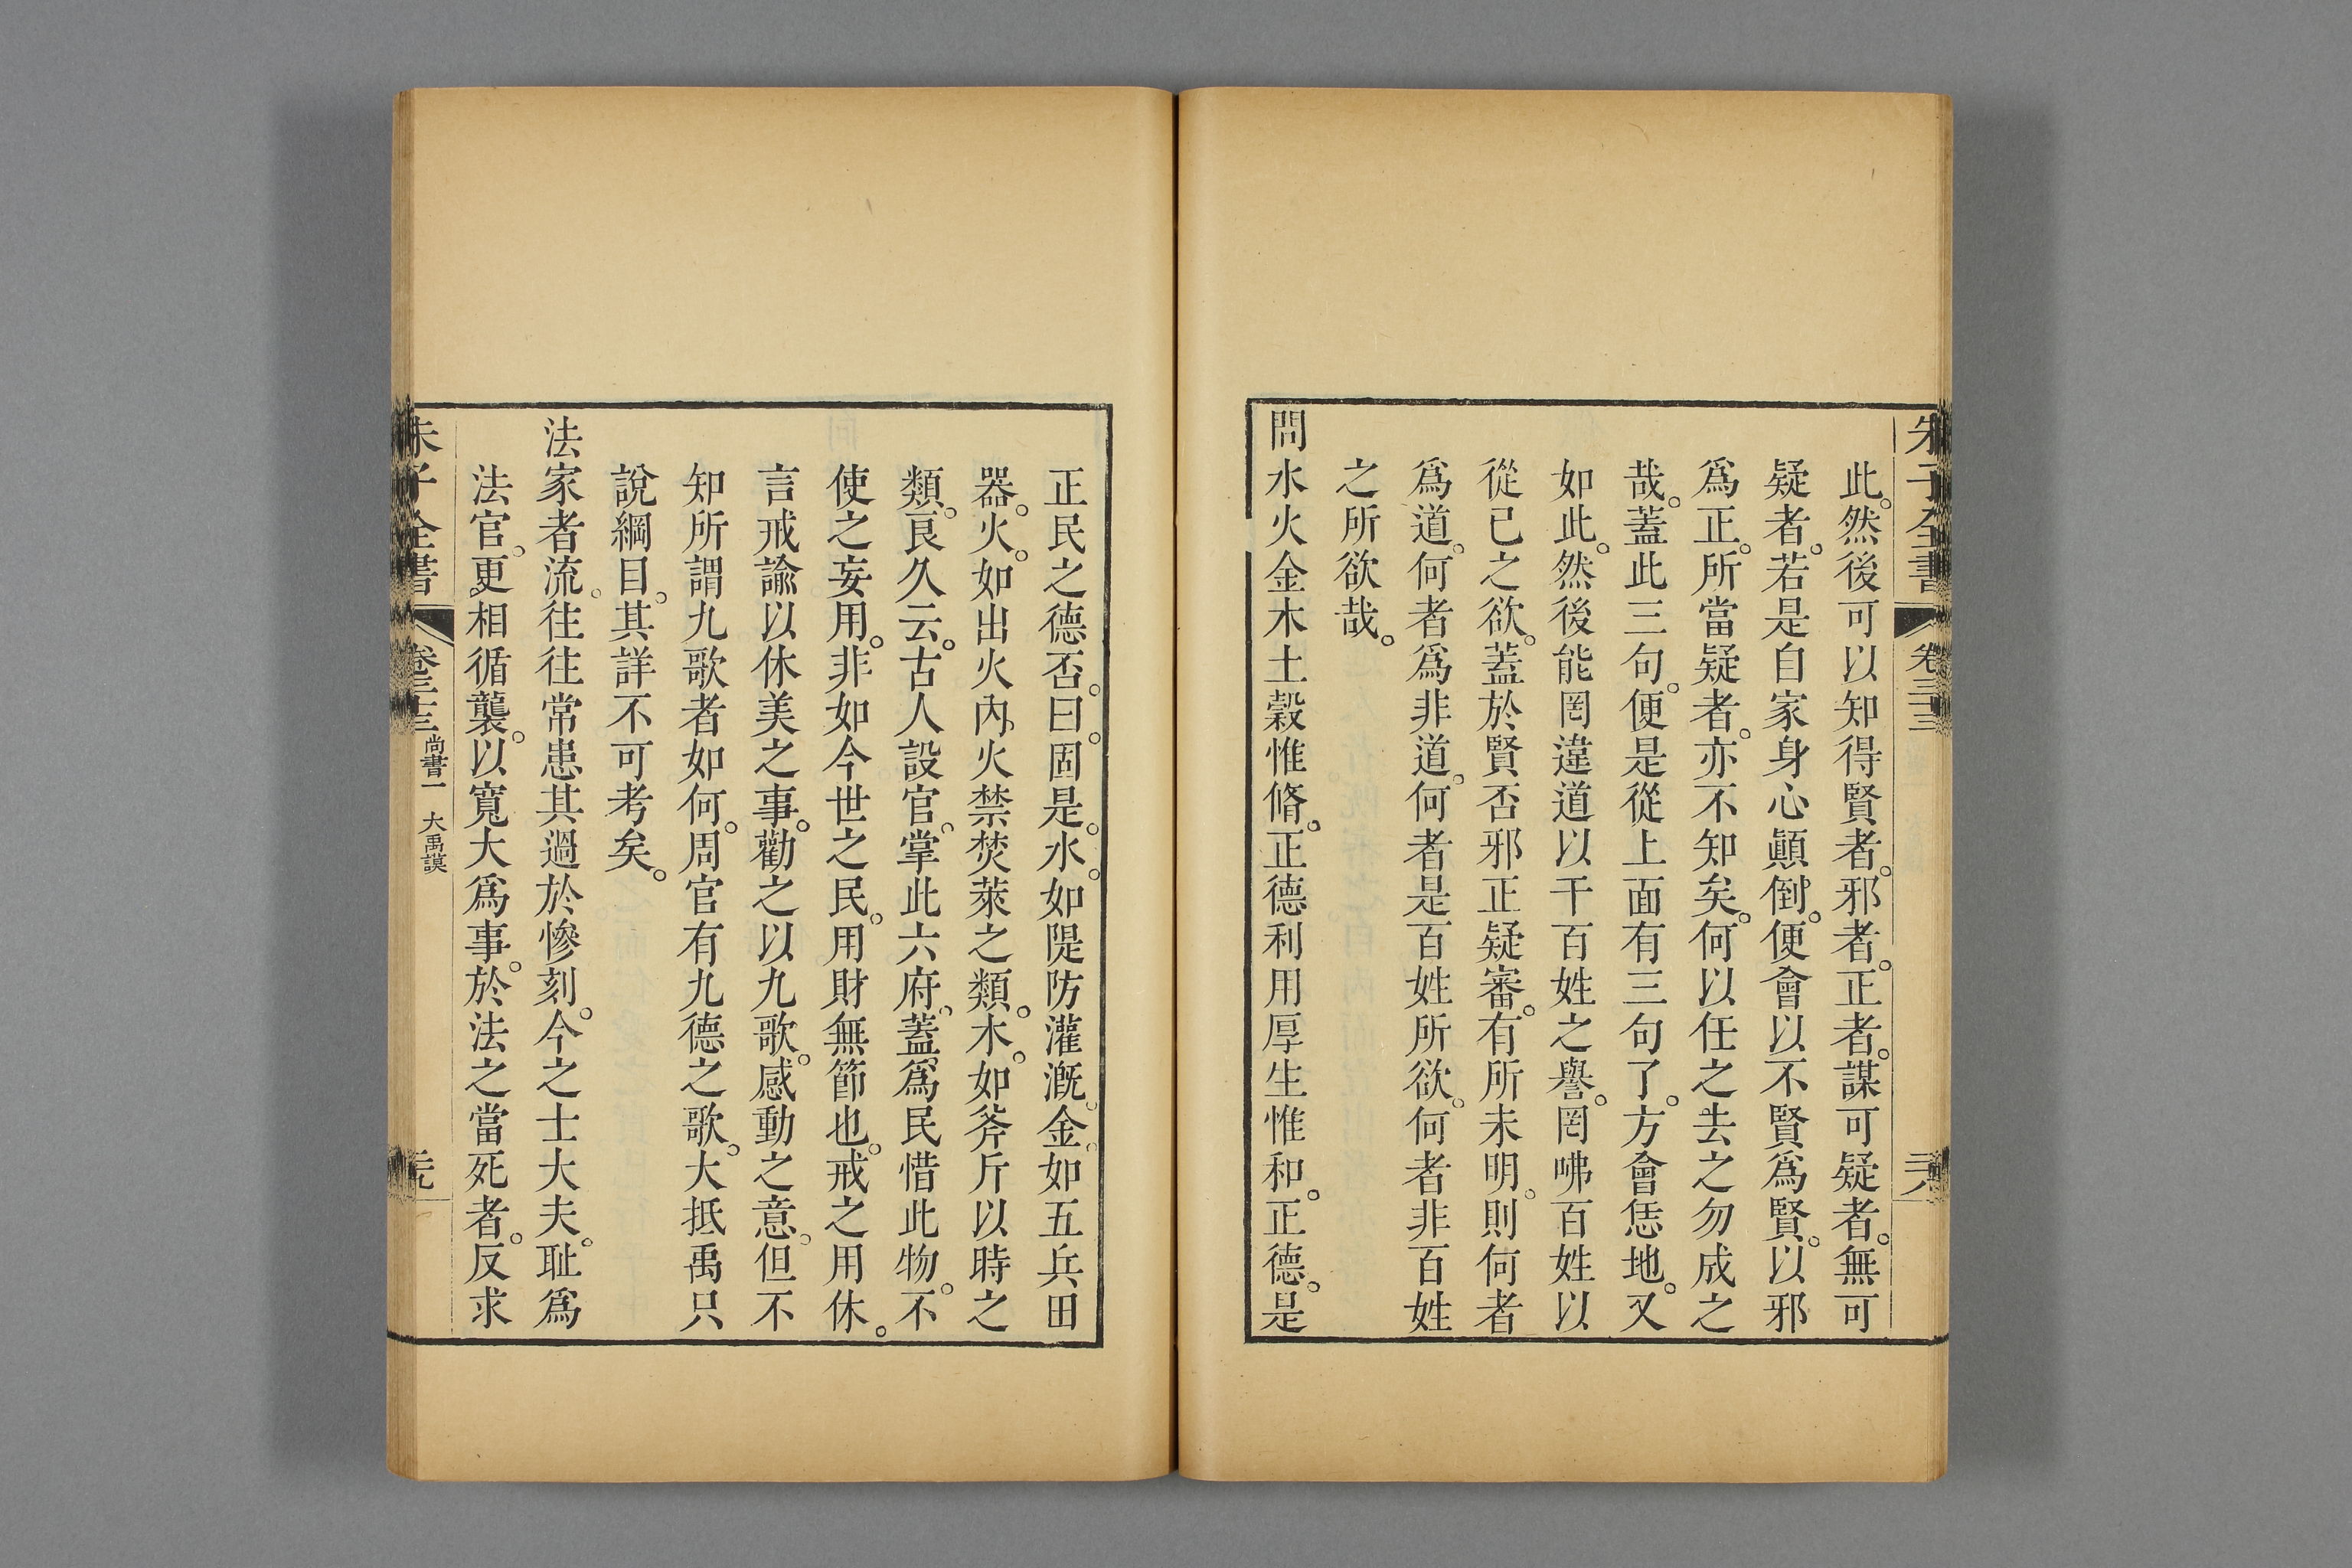 朱子全書 卷三十三 二十八
此。然後可以知得賢者。邪者。正者。謀可疑者。無可
疑者。若是自家身心顚倒。便會以不賢爲賢。以邪
爲正。所當疑者。亦不知矣。何以任之去之勿成之
哉。蓋此三句。便是從上面有三句了。方會恁地。又
如此。然後能罔違道以干百姓之譽。罔咈百姓以
從己之欲。蓋於賢否邪正疑審。有所未明。則何者
爲道。何者爲非道。何者是百姓所欲。何者非百姓
之所欲哉。
問水火金木土穀惟脩。正德利用厚生惟和。正德。是
正民之德否。曰。固是。水。如隄防灌漑。金。如五兵田
器。火。如出火內火禁焚萊之類。木。如斧斤以時之
類。良久云。古人設官。掌此六府。蓋爲民惜此物。不
使之妄用。非如今世之民。用財無節也。戒之用休。
言戒諭以休美之事。勸之以九歌。感動之意。但不
知所謂九歌者如何。周官有九德之歌。大抵禹只
說綱目。其詳不可考矣。
法家者流。往往常患其過於慘刻。今之士大夫。耻爲
法官。更相循襲。以寬大爲事。於法之當死者。反求
朱子全書 卷三十三 尚書一 大禹謨 二十九